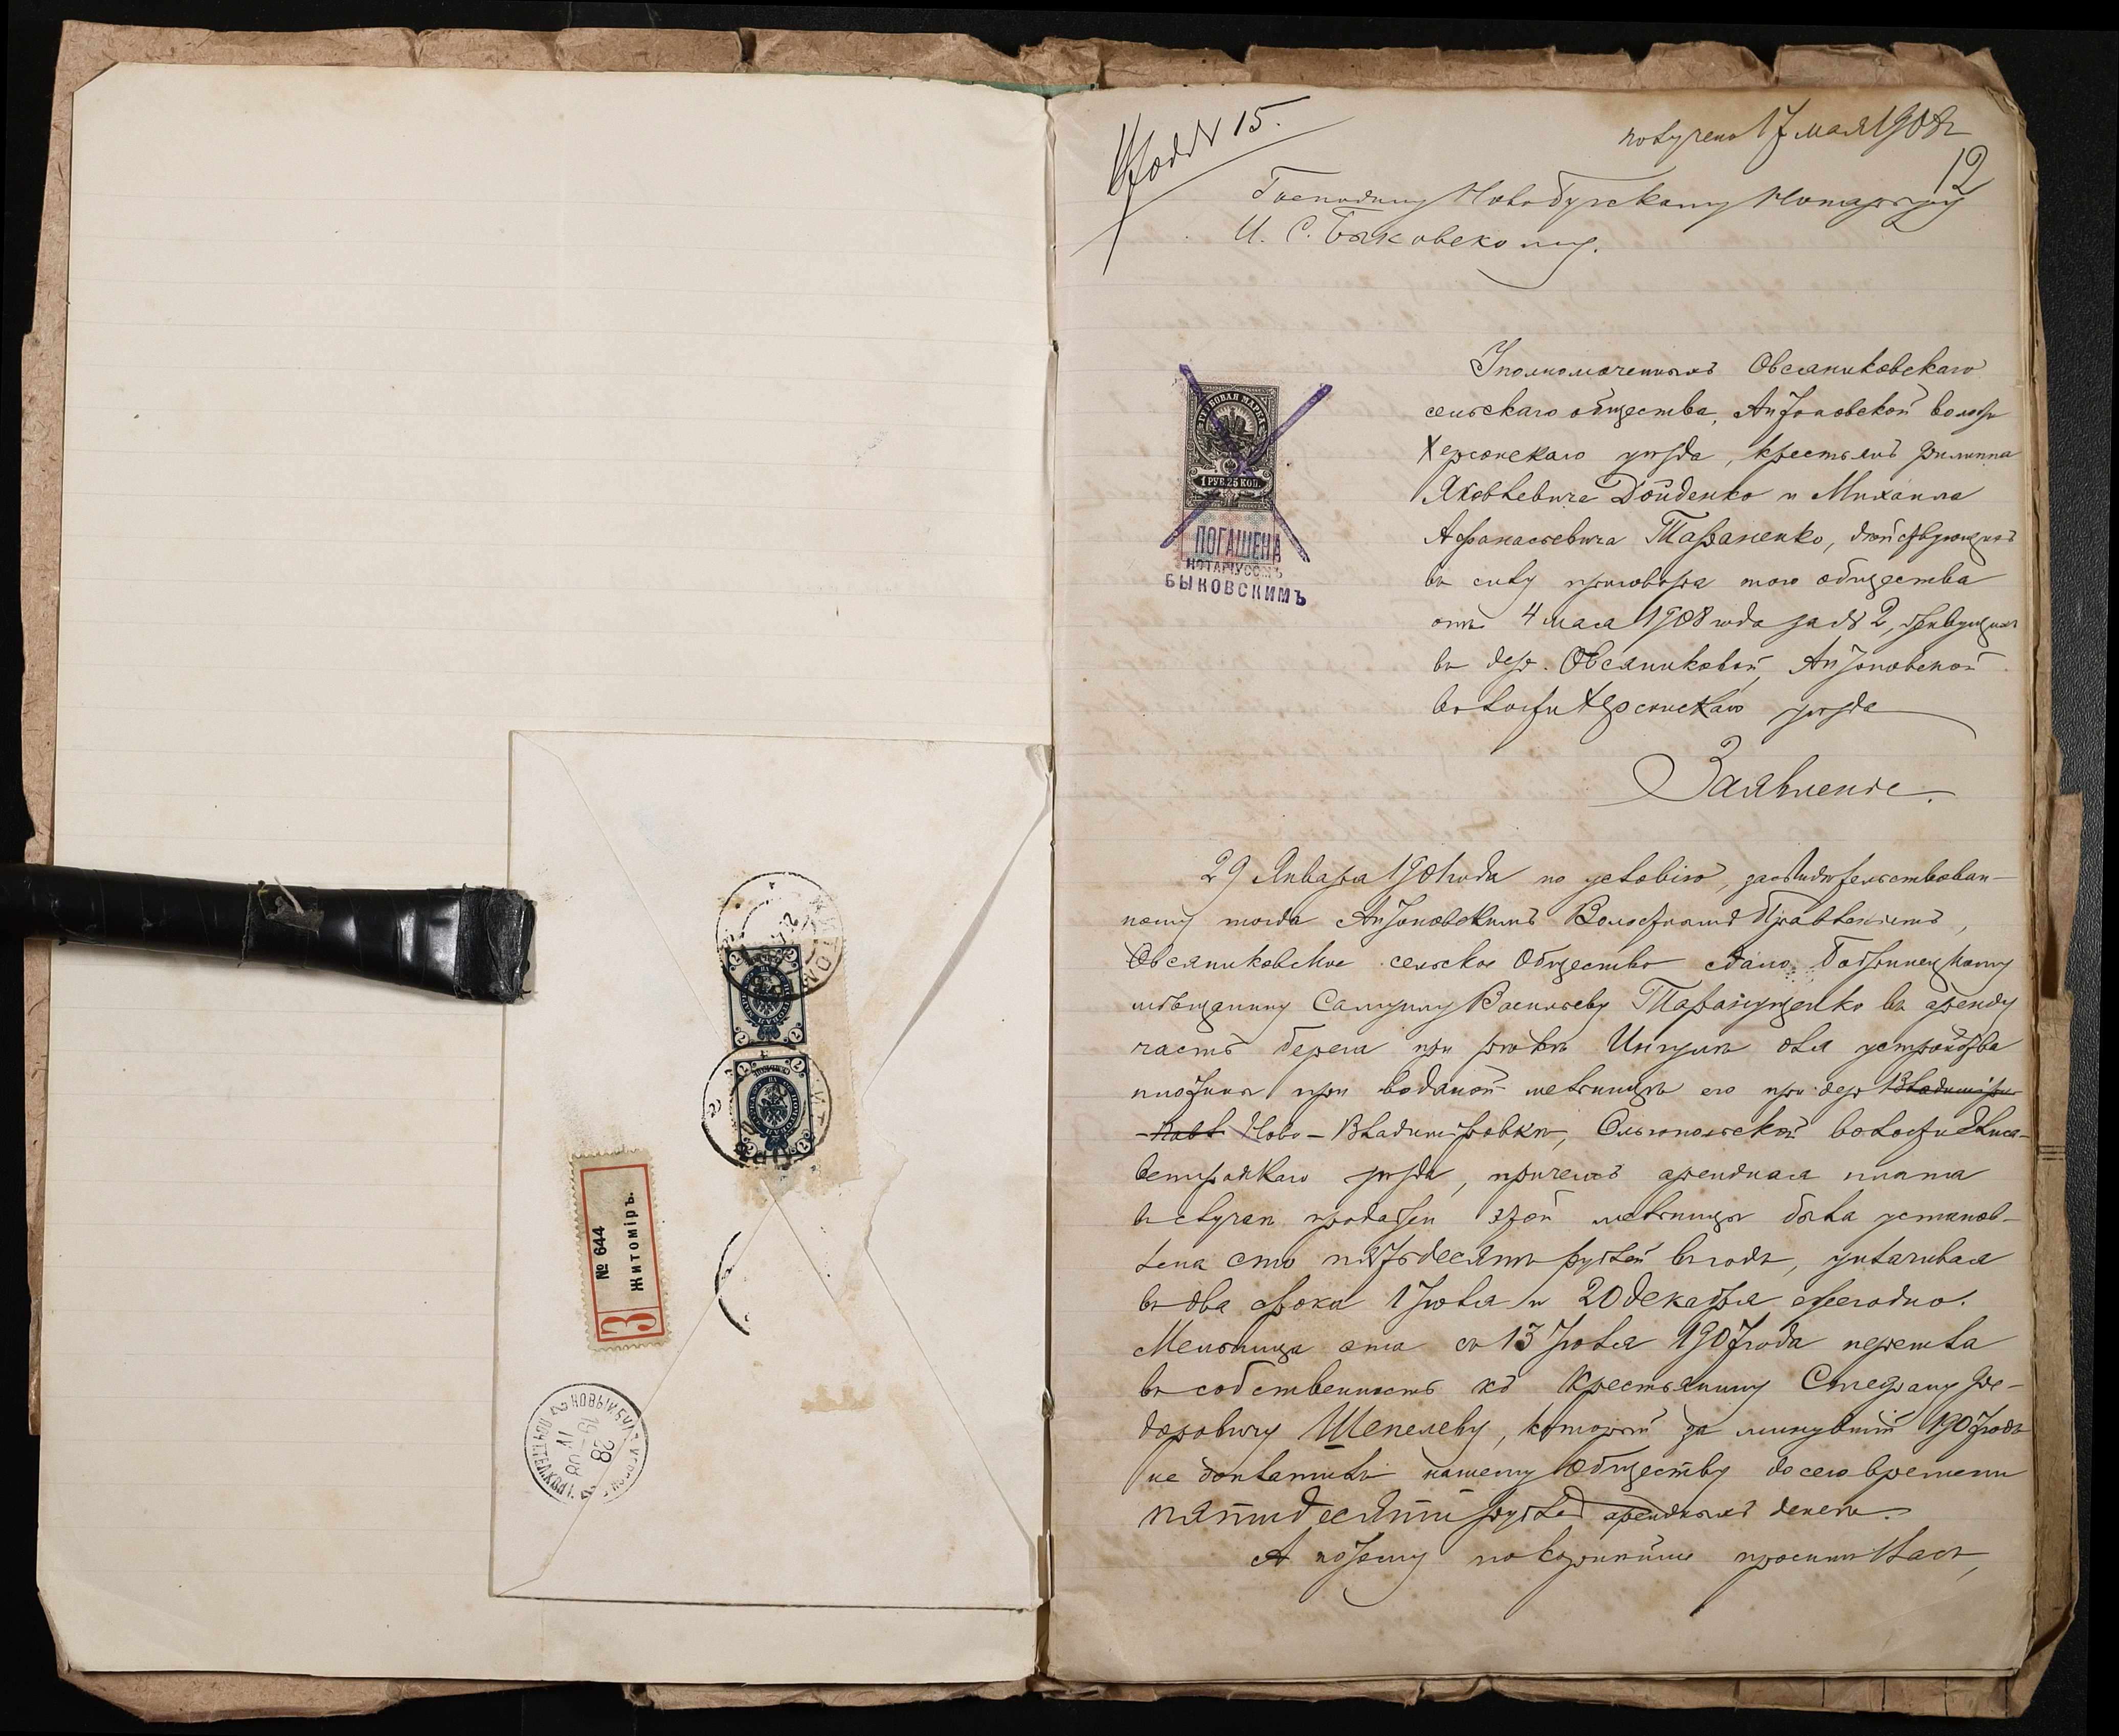 № 644
Житоміръ.
З
НОВЫЙ БУГЪ
28
IV
19 08
ПОЧТ.ТЕЛ.КОНТ.
№ 15.
получено 17 мая 1908 г
12
Господину Новобугскому Нотаріусу
И. С. Быковскому.
ГЕРБОВАЯ МАРКА
1 РУБ. 25 КОП.
ПОГАШЕНА
НОТАРІУСОМЪ
БЫКОВСКИМЪ
Уполномоченныхъ Овсяниковскаго
сельскаго общества, Антоновской волости
Херсонскаго уѣзда, крестьянъ Филиппа
Яковлевича Дойденко и Михаила
Афанасьевича Тараненко, дѣйствующихъ
въ силу приговора того общества
отъ 4 мая 1908 года за № 2, живущихъ
въ дер. Овсяниковой, Антоновской
волости Херсонскаго уѣзда
Заявленіе.
29 Января 1901 года по условію, засвидѣтельствован-
ному тогда Антоновскимъ Волостнымъ Правленіемъ,
Овсяниковское сельское Общество сдало Бобринецкому
мѣщанину Самуилу Васильеву Таранущенко въ аренду
часть берега при рѣкѣ Ингулѣ для устройства
плотины при водяной мельницѣ его при дер Владиміро-
Ново-Владиміровкѣ, Ольгопольской волости Елиса-
ветградскаго уѣзда, причемъ арендная плата
въ случаѣ продажи этой мельницы была установ-
лена сто пятьдесятъ рублей въ годъ, уплачивая
въ два срока 1 Іюля и 20 декабря ежегодно.
Мельница эта съ 13 Іюля 1907 года перешла
въ собственность къ крестьянину Стефану Фе-
доровичу Шепелеву, который за минувшій 1907 годъ
не доплатилъ нашему Обществу до сего времени
пятидесяти рублей арендныхъ денегъ.
А потому покорнѣйше просимъ Васъ,